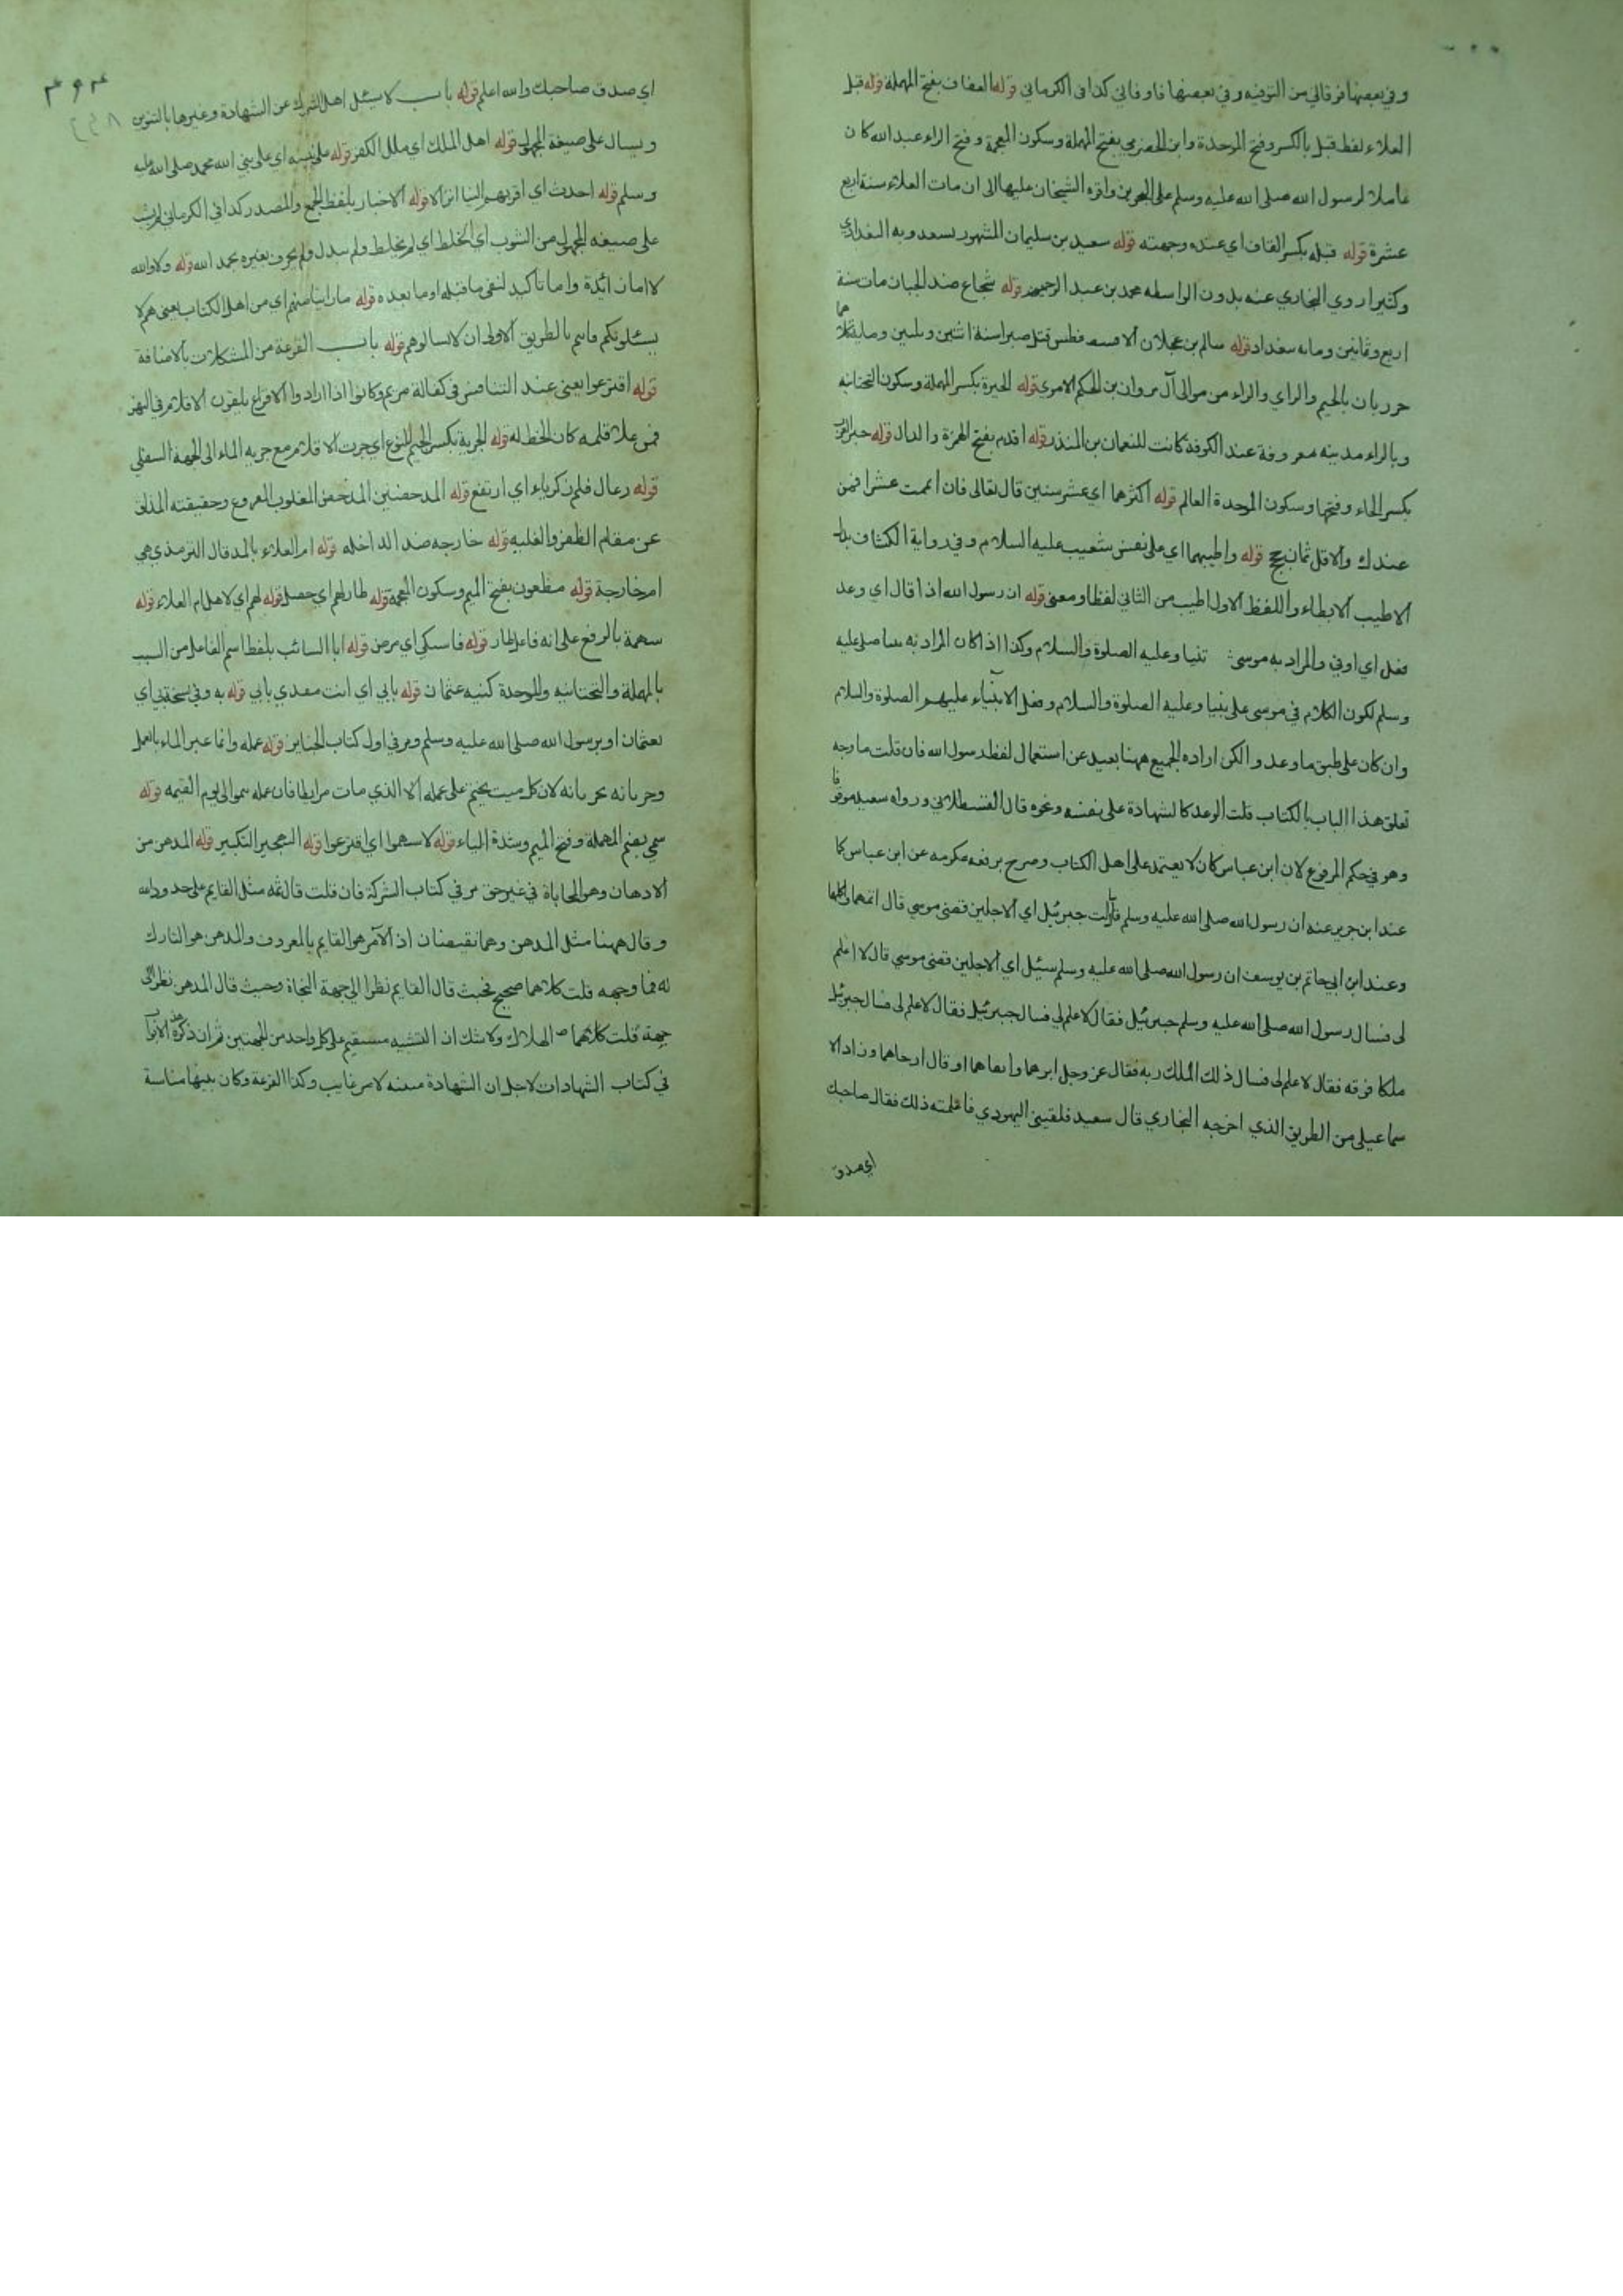 وفي بعضها فرقاني من التوفيه وفي بعضها فاوفاني كذا في الكرماني قوله العفاف بفتح المهملة قوله قبل
العلاء لفظ قبل بالكسر وفتح الموحدة وابن الحضرمي بفتح المهملة وسكون المعجمة وفتح الراء عبد الله كان
عاملا لرسول الله صلى الله عليه وسلم على البحرين واقره الشيخان عليها الى ان مات العلاء سنة اربع
عشرة قوله قبله بكسر القاف اي عنده وجهته قوله سعيد بن سليمان المشهور بسعدويه البغدادي
وكثيرا روي البخاري عنه بدون الواسطه محمد بن عبد الرحيم قوله شجاع ضد الجبان مات سنة
اربع وثمانين ومايه ببغداد قوله سالم بن عجلان الافطس قتل صبرا سنة اثنين وثلثين ومايه كلاهما
حرريان بالجيم والزاي والراء من موالى آل مروان بن الحكم الاموي قوله الحيرة بكسر المهملة وسكون التحتانيه
وبالراء مدينه معروفة عند الكوفة كانت للنعمان بن المنذر قوله اقدم بفتح الهمزة والدال قوله حبر العرب
بكسر الحاء وفتحها وسكون الموحدة العالم قوله اكثرهما اي عشر سنين قال تعالى فان اتممت عشرا فمن
عندك والاقل ثمان حجج قوله واطيبهما اي على نفس شعيب عليه السلام وفي رواية الكشاف بدل
الاطيب الابطاء واللفظ الاول اطيب من الثاني لفظا ومعنى قوله ان رسول الله اذا قال اي وعد
فعل اي اوفي والمراد به موسى نبينا وعليه الصلوة والسلام وكذا اذا كان المراد به نبينا صلى عليه
وسلم لكون الكلام في موسى على نبينا وعليه الصلوة والسلام وفعل الانبياء عليهم الصلوة والسلام
وان كان على طبق ما وعدوا لكن اراده الجميع ههنا بعيد عن استعمال لفظ رسول الله فان قلت ما وجه
تعلق هذا الباب بالكتاب قلت الوعد كالشهادة على نفسه وغوه قال القسطلاني ورواه سعيد موقوفا
وهو في حكم المرفوع لان ابن عباس كان لا يعتمد على اهل الكتاب وصرح برفعه عكرمه عن ابن عباس كما
عند ابن جرير عنه ان رسول الله صلى الله عليه وسلم قال سألت جبرئيل اي الاجلين قضى موسي قال اتمهما واكملهما
وعند ابن ابي حاتم بن يوسف ان رسول الله صلى الله عليه وسلم سئيل اي الاجلين قضى موسي قال لا اعلم
لى فسال رسول الله صلى الله عليه وسلم جبرئيل فقال لا علم لي فسال جبرئيل فقال لا علم لى فسال جبرئيل
ملكا فوقه فقال لا علم لى فسال ذلك الملك ربه فقال عز وجل ابرهما وابقاهما او قال ارجاهما وزاد الا
سماعيلى من الطريق الذي اخرجه البخاري قال سعيد فلقيني اليهودي فاعلمته ذلك فقال صاحبك
اي صدق
٣٩٣
اي صدق صاحبك والله اعلم قوله باب لا يسئل اهل الشرك عن الشهادة وغيرها بالتنوين
ويسال على صيغة المجهول قوله اهل الملك اي ملل الكفر قوله على نبيه اي على نبي الله محمد صلى الله عليه
وسلم قوله احدث اي اقربهم الينا انزالا قوله الاخبار بلفظ الجمع والمصدر كذا في الكرماني لم يشب
على صيغه المجهول من الشوب اي الخلط اي لم يخلط ولم يبدل ولم يحرف بغيره بحمد الله قوله ولا والله
لا اما زائدة واما تاكيد لنفى ما قبله او ما بعده قوله ما راينا منهم اي من اهل الكتاب يعنى هم لا
يسئلونكم فانتم بالطريق الاولى ان لا تسالوهم قوله باب القرعة من المشكلات بالاضافة
قوله اقترعوا يعني عند التنافس في كفالة مريم وكانوا اذا ارادوا الاقتراع يلقون الاقلام في النهر
فمن علا قلمه كان الحظ له قوله الجرية بكسر الجيم للنوع اي جرت الاقلام مع جريه الماء الى الجهة السفلي
قوله وعال قلم زكرياء اي ارتفع قوله المدحضين المدحض المغلوب المقروع وحقيقته المزلق
عن مقام الظفر والغلبه قوله خارجه ضد الداخله قوله ام العلاء بالمد قال الترمذي هي
ام خارجة قوله مظعون بفتح الميم وسكون المعجمة قوله طار لهم اي حصل قوله لهم اي لاهل ام العلاء قوله
سهمة بالرفع على انه فاعل طار قوله فاسكى اي مرض قوله ابا السائب بلفظ اسم الفاعل من السيب
بالمهملة والتحتانيه والموحدة كنيه عثمان قوله بابي اي انت مفدي بابي قوله به وفي نسخة بي اي
بعثمان او برسول الله صلى الله عليه وسلم ومر في اول كتاب الجنايز قوله عمله وانما عبر الماء بالعمل
وجريانه بجريانه لان كل ميت يختم على عمله الا الذي مات مرابطا فان عمله ينموا الى يوم القيمه قوله
سمي بضم المهملة وفتح الميم وشدة الياء قوله لاستهموا اي اقترعوا قوله التهجير التكبير قوله المدهن من
الادهان وهو المحاباة في غير حق مر في كتاب الشركة فان قلت قال ثمه مثل القايم على حدود الله
وقال ههنا مثل المدهن وهما نقيضان اذ الآمر هو القايم بالمعروف والمدهن هو التارك
له فما وجهه قلت كلاهما صحيح فحيث قال القايم نظرا الي جهة النجاة وحيث قال المدهن نظر الى
جهة قلت كلاهما الهلاك ولا شك ان التشبيه مستقيم على كل واحد من الجهتين ثم ان ذكره هذه الابواب
في كتاب الشهادات لاجل ان الشهادة مبينه لامر غايب وكذا القرعة وكان بينهما مناسبة